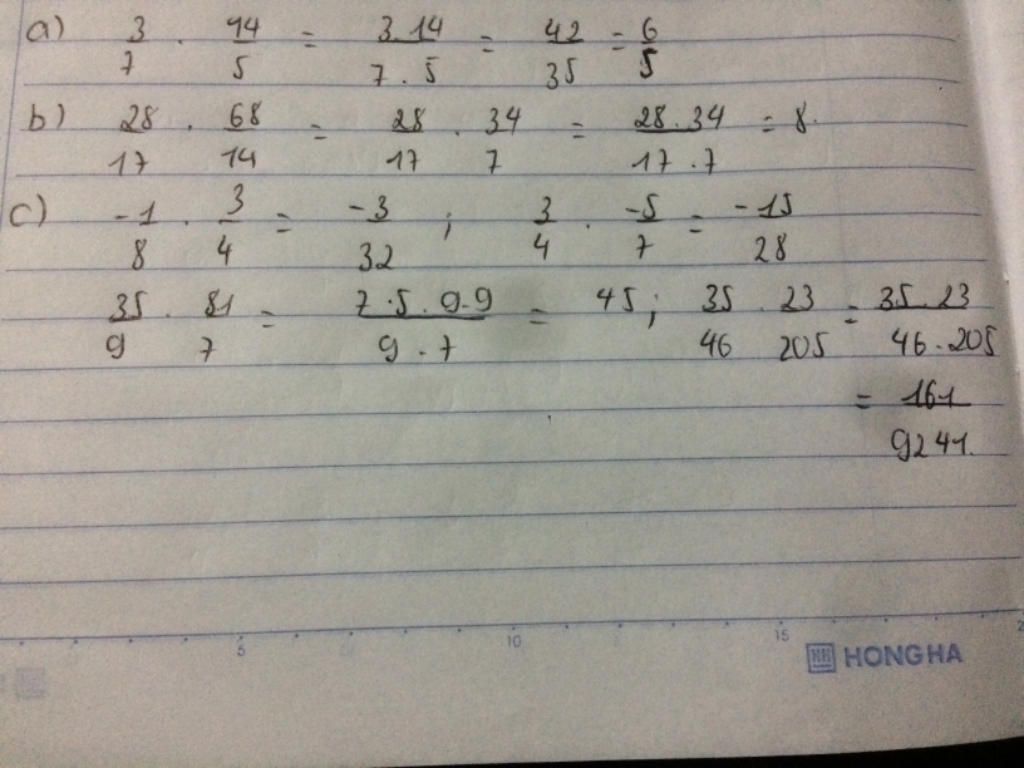 a) 3/7 . 14/5 = 3.14/7.5 = 42/35 = 6/5
b) 28/17 . 68/14 = 28/17 . 34/7 = 28.34/17.7 = 8.
c) -1/8 . 3/4 = -3/32 ; 3/4 . -5/7 = -15/28
35/9 . 81/7 = 7.5.9.9/9.7 = 45; 35/46 . 23/205 = 35.23/46.205
= 161/9241.
5 10 15
HONG HA